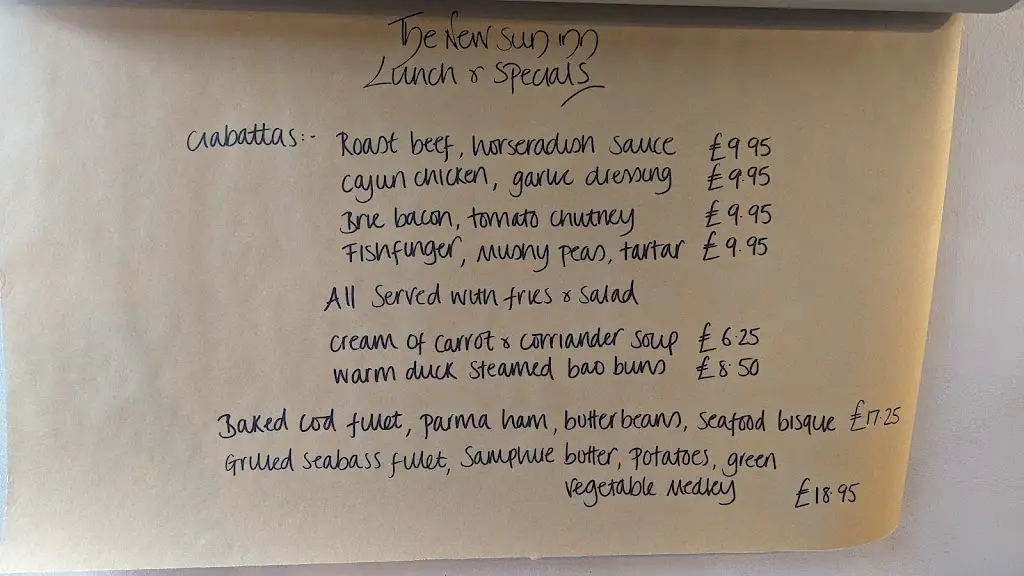 The New Sun inn
Lunch & Specials
Ciabattas:- Roast beef, horseradish sauce £9.95
cajun chicken, garlic dressing £9.95
Brie bacon, tomato chutney £9.95
Fishfinger, mushy peas, tartar £9.95
All Served with fries & Salad
cream of carrot & corriander soup £6.25
warm duck steamed bao buns £8.50
Baked cod fillet, parma ham, butterbeans, seafood bisque £17.25
Grilled seabass fillet, Samphire butter, potatoes, green
vegetable Medley £18.95